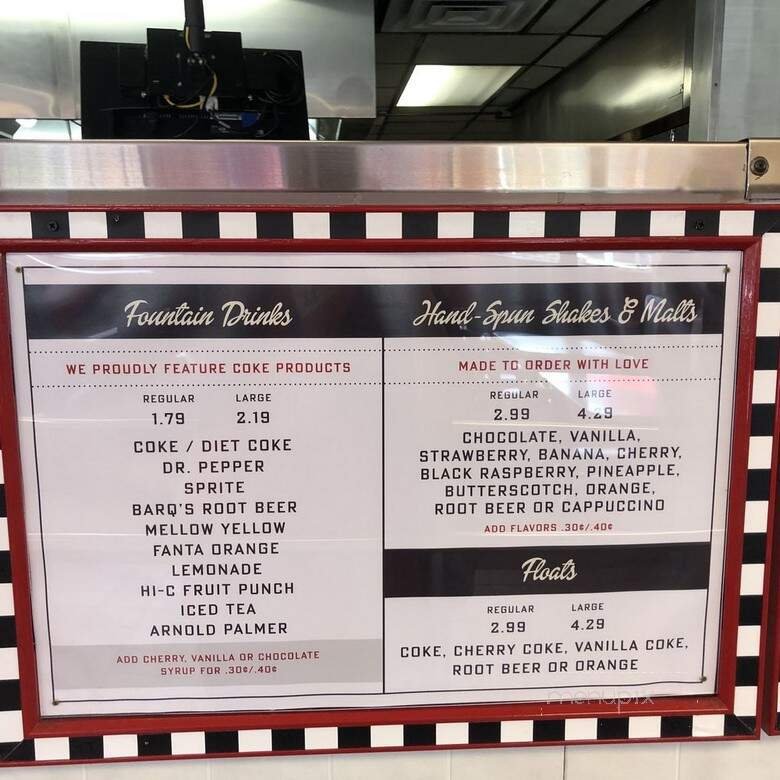 Fountain Drinks
WE PROUDLY FEATURE COKE PRODUCTS
REGULAR LARGE
1.79 2.19
COKE / DIET COKE
DR. PEPPER
SPRITE
BARQ'S ROOT BEER
MELLOW YELLOW
FANTA ORANGE
LEMONADE
HI-C FRUIT PUNCH
ICED TEA
ARNOLD PALMER
ADD CHERRY, VANILLA OR CHOCOLATE
SYRUP FOR .30¢/.40¢
Hand-Spun Shakes & Malts
MADE TO ORDER WITH LOVE
REGULAR LARGE
2.99 4.29
CHOCOLATE, VANILLA,
STRAWBERRY, BANANA, CHERRY,
BLACK RASPBERRY, PINEAPPLE,
BUTTERSCOTCH, ORANGE,
ROOT BEER OR CAPPUCCINO
ADD FLAVORS .30¢/.40¢
Floats
REGULAR LARGE
2.99 4.29
COKE, CHERRY COKE, VANILLA COKE,
ROOT BEER OR ORANGE
menupix